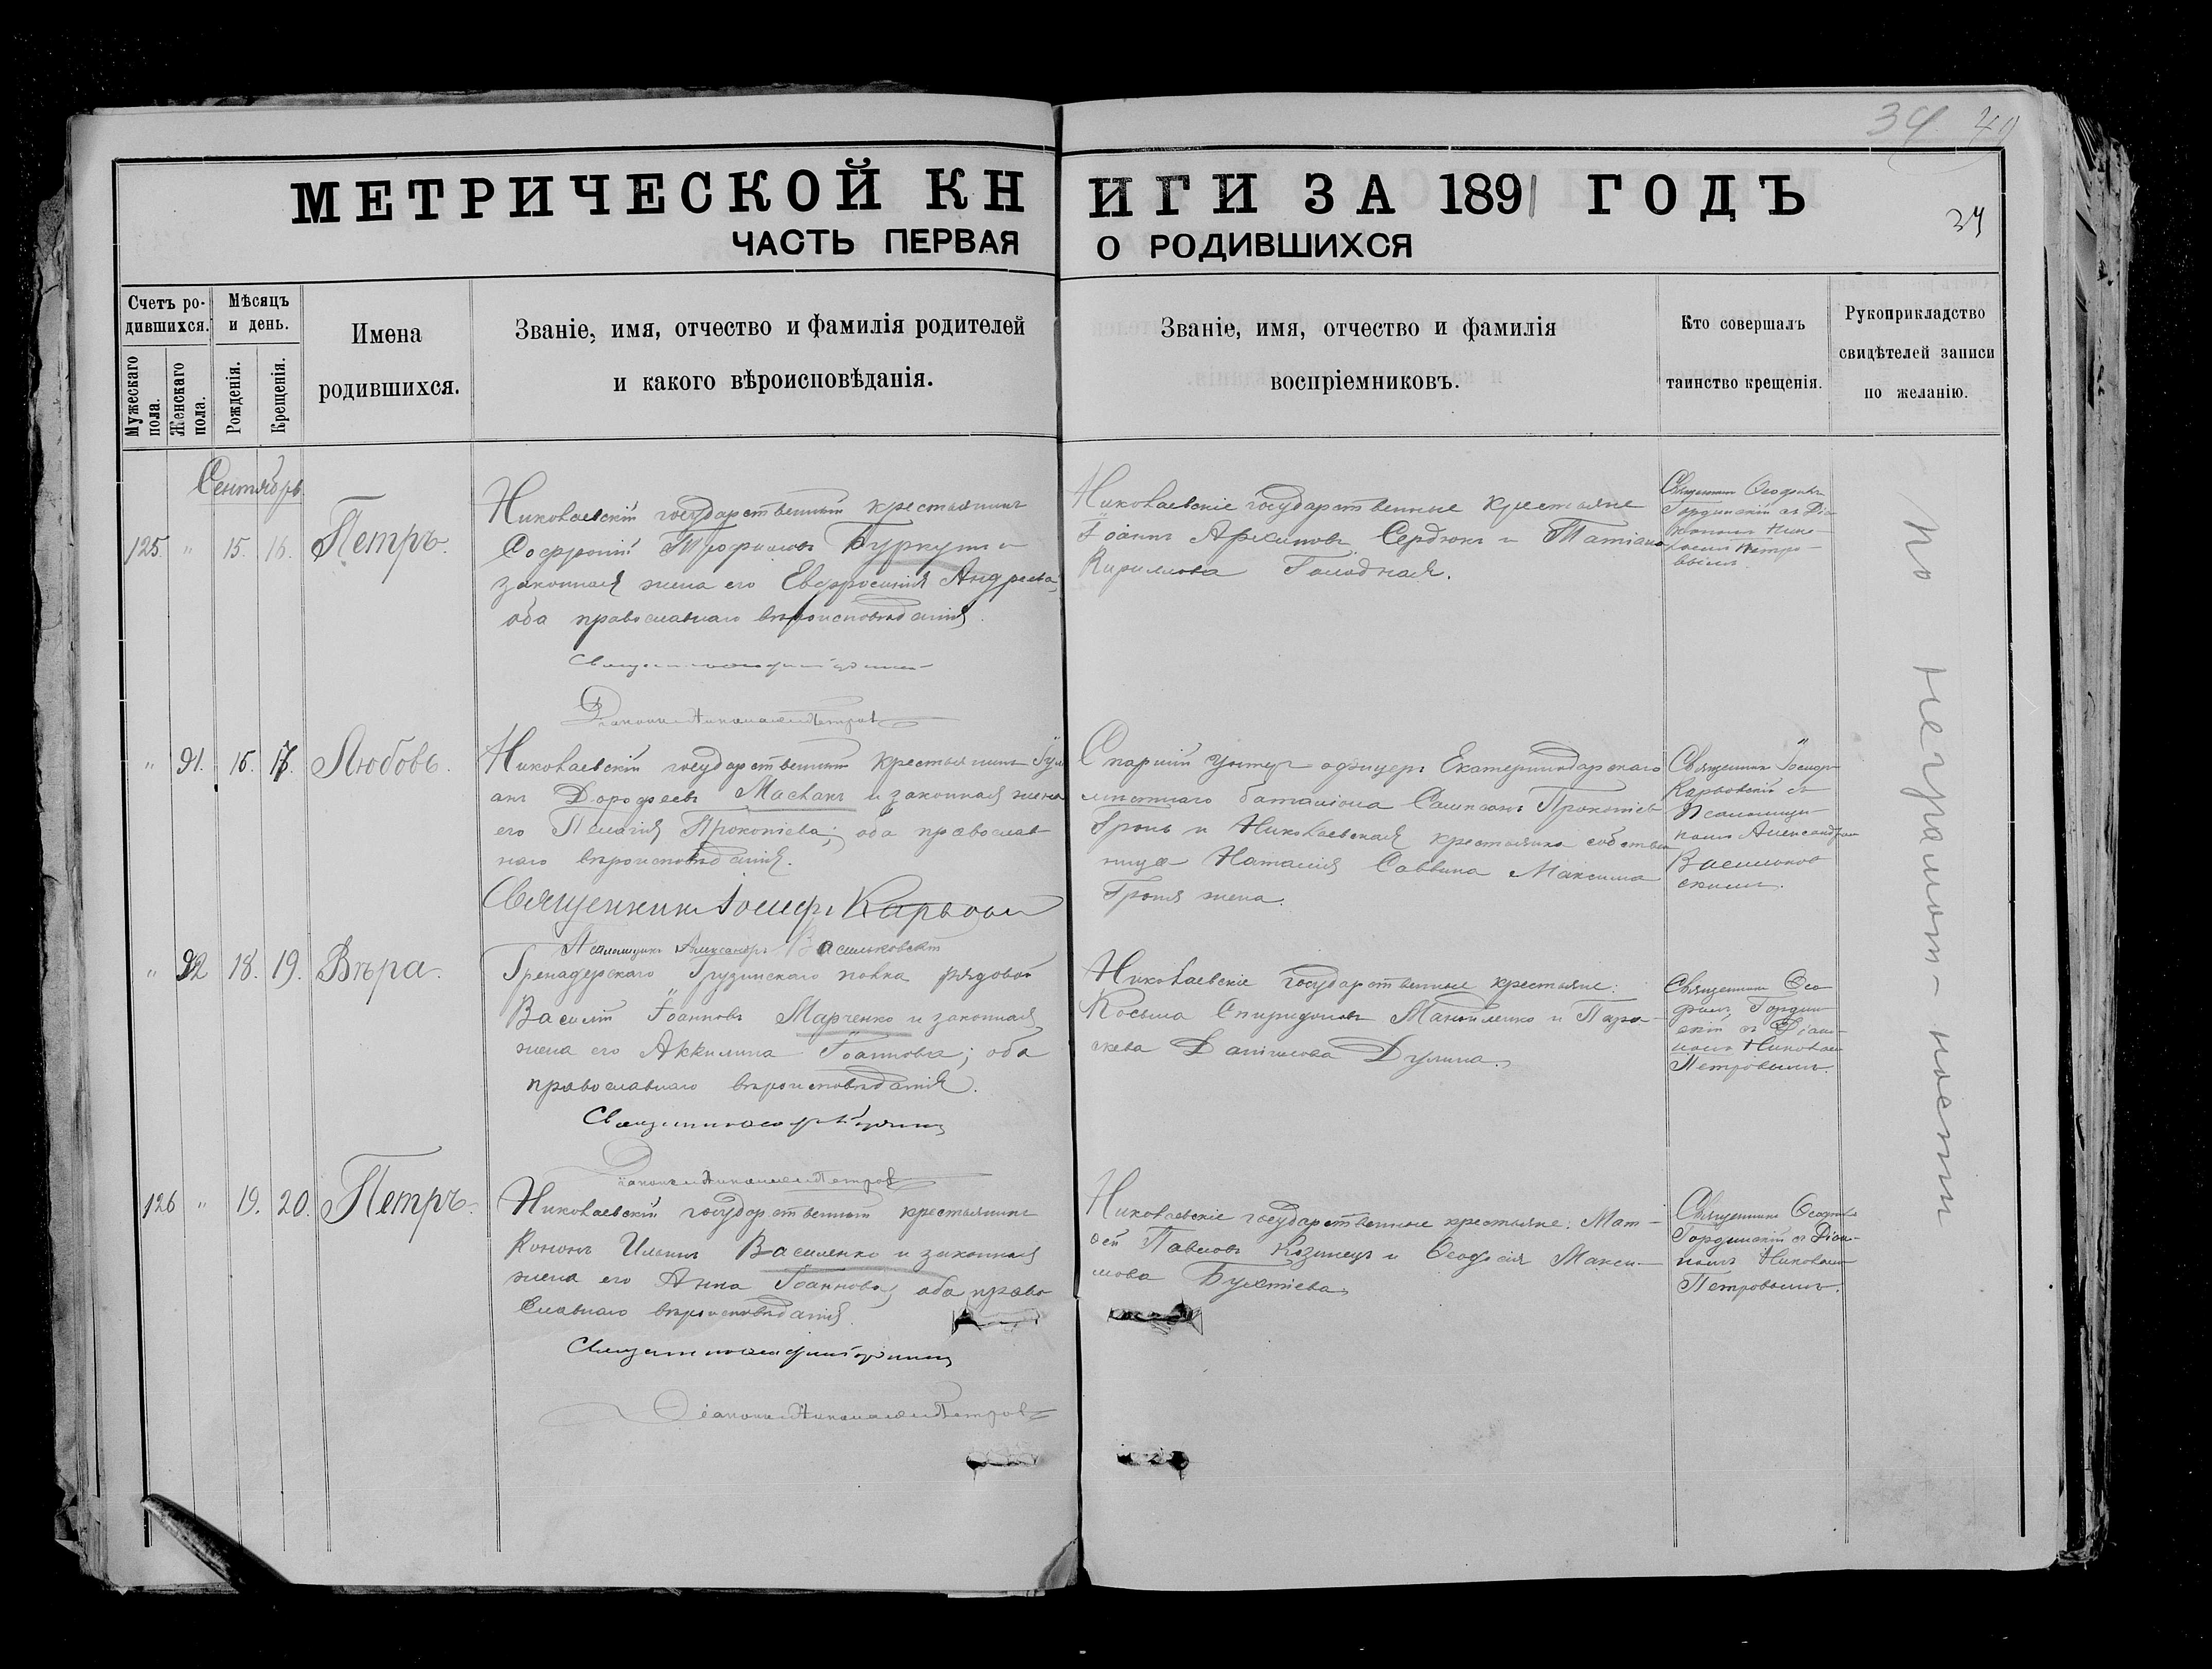 34
МЕТРИЧЕСКОЙ КНИГИ ЗА 1891 ГОДЪ
34
ЧАСТЬ ПЕРВАЯ О РОДИВШИХСЯ
Счетъ ро-
дившихся.
Мужескаго
пола.
Женскаго
пола.
Мѣсяцъ
и день.
Рожденія.
Крещенія.
Имена
родившихся.
Званіе, имя, отчество и фамилія родителей
и какого вѣроисповѣданія.
Званіе, имя, отчество и фамилія
воспріемниковъ.
Кто совершалъ
таинство крещенія.
Рукоприкладство
свидѣтелей записи
по желанію.
Сентябрь
125. " 15. 16. Петръ.
Николаевскій государственный крестьянинъ
Софроній Трофимовъ Буркутъ и
законная жена его Евфросинія Андреева,
оба православнаго вѣроисповѣданія.
Діаконъ Николай Петровъ
Николаевскіе государственные крестьяне
Іоаннъ Архиповъ Сердюкъ и Татіана
Кириллова Голодная.
Священникъ
Гординскій съ Діа-
кономъ Нико-
лаемъ Петро-
вымъ.
" 91. 16. 17. Любовь.
Николаевскій государственный крестьянинъ Іули
анъ Дорофеевъ Маслакъ и законная жена
его Пелагія Прокопіева; оба православ
наго вѣроисповѣданія.
Священникъ Іосифъ
Псаломщикъ Александръ Васильковскій
Старшій Унтеръ офицеръ Екатеринодарскаго
мѣстнаго баталіона Сампсонъ Прокопіевъ
Гронь и Николаевская крестьянка собствен
ница Наталія Саввина Максима
Гроня жена.
Священникъ Іосифъ
Карвовскій съ
Псаломщи-
комъ Александромъ
Васильков
скимъ.
" 92 18. 19. Вѣра.
Гренадерскаго Грузинскаго полка рядовой
Василій Іоанновъ Марченко и законная
жена его Акилина Іоаннова; оба
православнаго вѣроисповѣданія.
Діаконъ Николай Петровъ
Николаевскіе государственные крестьяне:
Косьма Спиридоновъ Манойленко и Пара-
скева Даніилова Дулина.
Священникъ Ѳео
филъ Гордин
скій съ Діако-
номъ Николаемъ
Петровымъ.
126 " 19. 20. Петръ.
Николаевскій государственный крестьянинъ
Кононъ Ильинъ Василенко и законная
жена его Анна Іоаннова; оба право
славнаго вѣроисповѣданія.
Діаконъ Николай Петровъ
Николаевскіе государственные крестьяне: Мат-
ѳей Павловъ Козинецъ и Ѳеодосія Макси-
мова Бухтіева
Священникъ Ѳеофилъ
Гординскій съ Діако-
номъ Николаемъ
Петровымъ.
по неграмот-ности